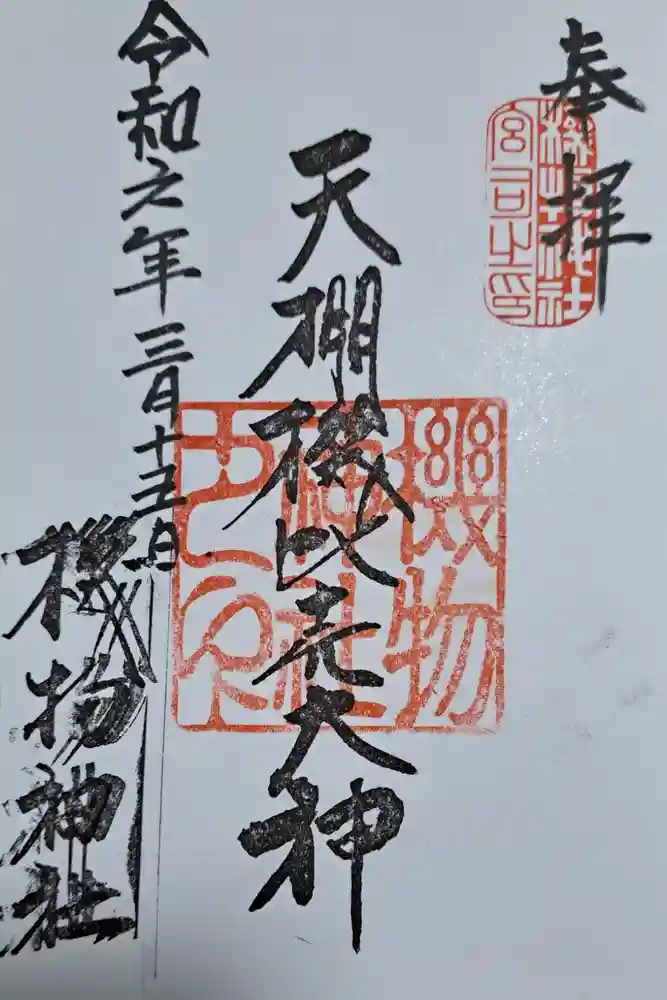 奉拝
機物神社
宮司之印
天棚機比売大神
機物
神社
之印
令和六年三月十五日
機物神社